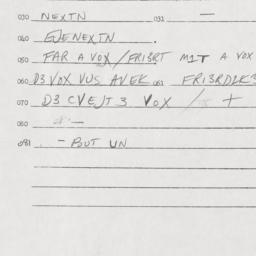 030 NEXTN 031 —
040 GENEXTN .
050 FAR A VOX / FRI3RT MIT A VOX
060 D3 VOX VUS AVEK 061 FRI3RDLK3
070 D3 CVEJT3 VOX / +
080 —
081 - BUT UN